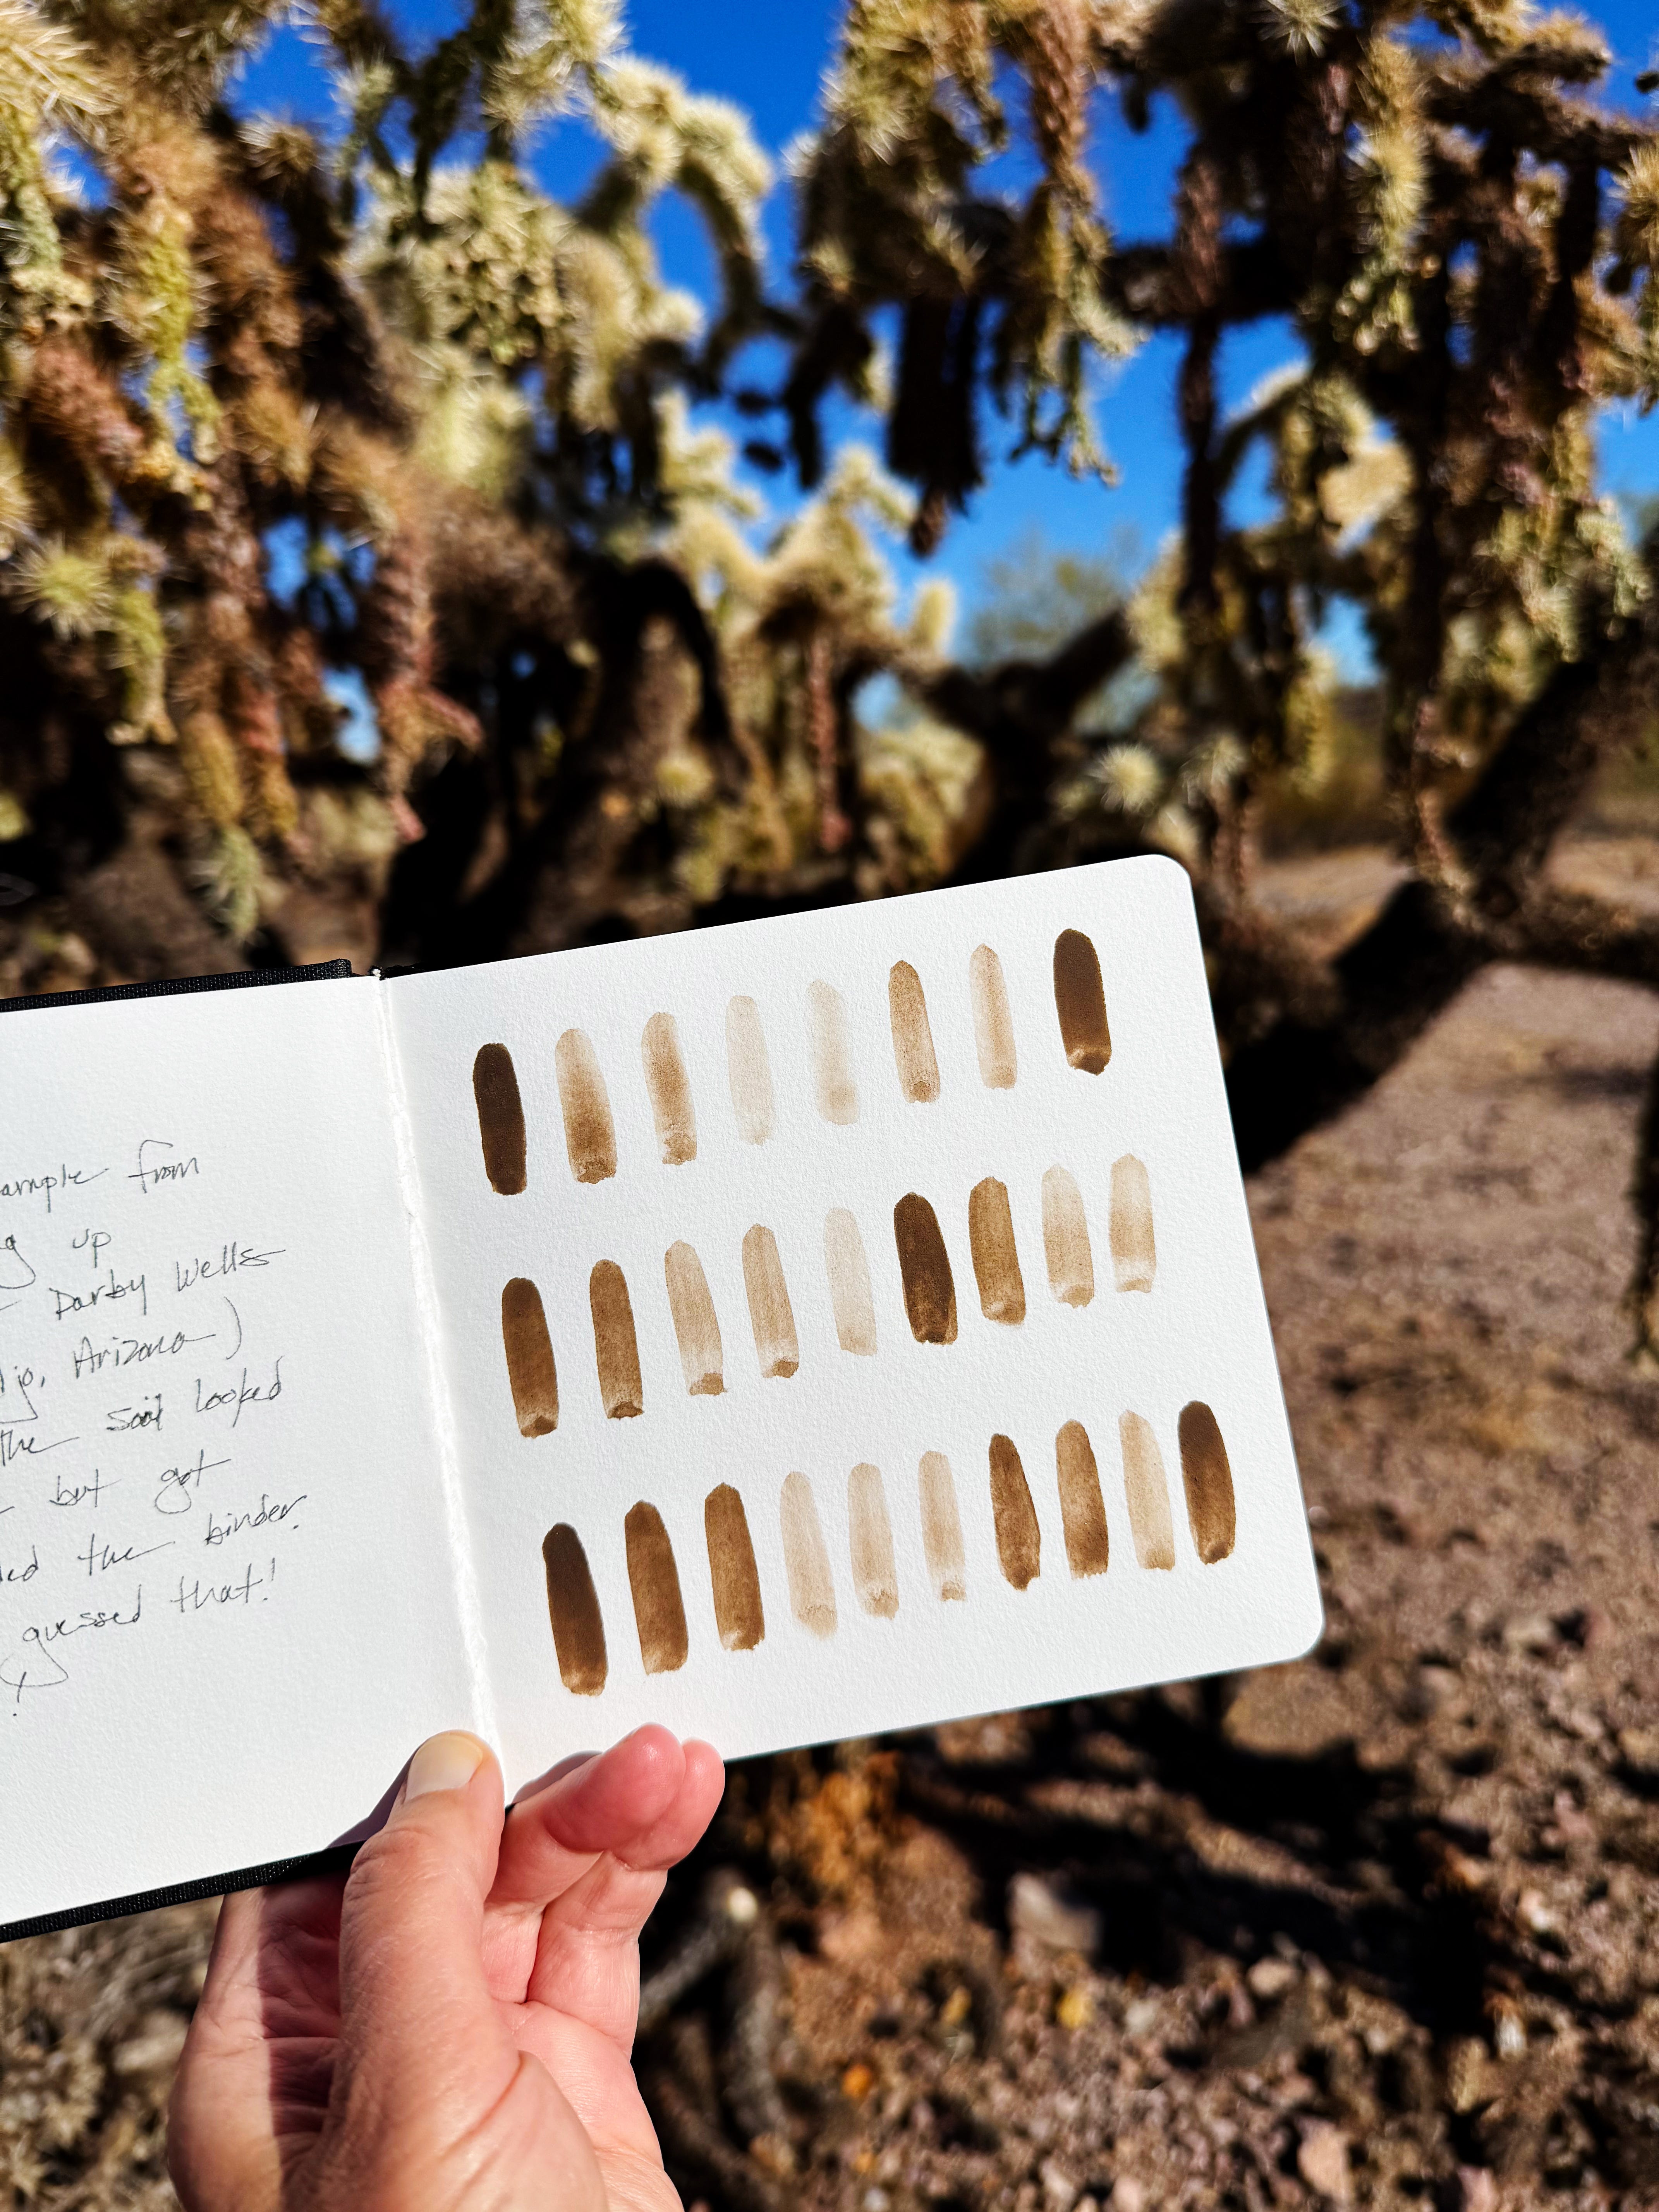 sample from
up
Darby Wells
Ajo, Arizona)
the soil looked
but got
the binder.
guessed that!